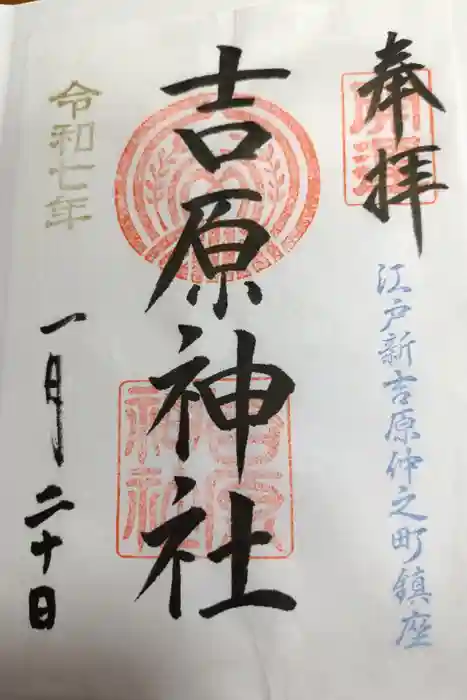 奉拝
開運
江戸新吉原仲之町鎮座
吉原神社
吉原神社
令和七年
一月二十日